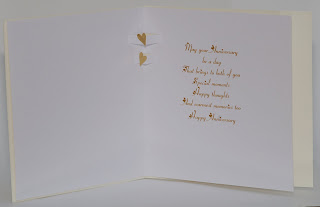 May your Anniversary
be a day
That brings to both of you
Special moments
Happy thoughts
And warmest memories too
Happy Anniversary